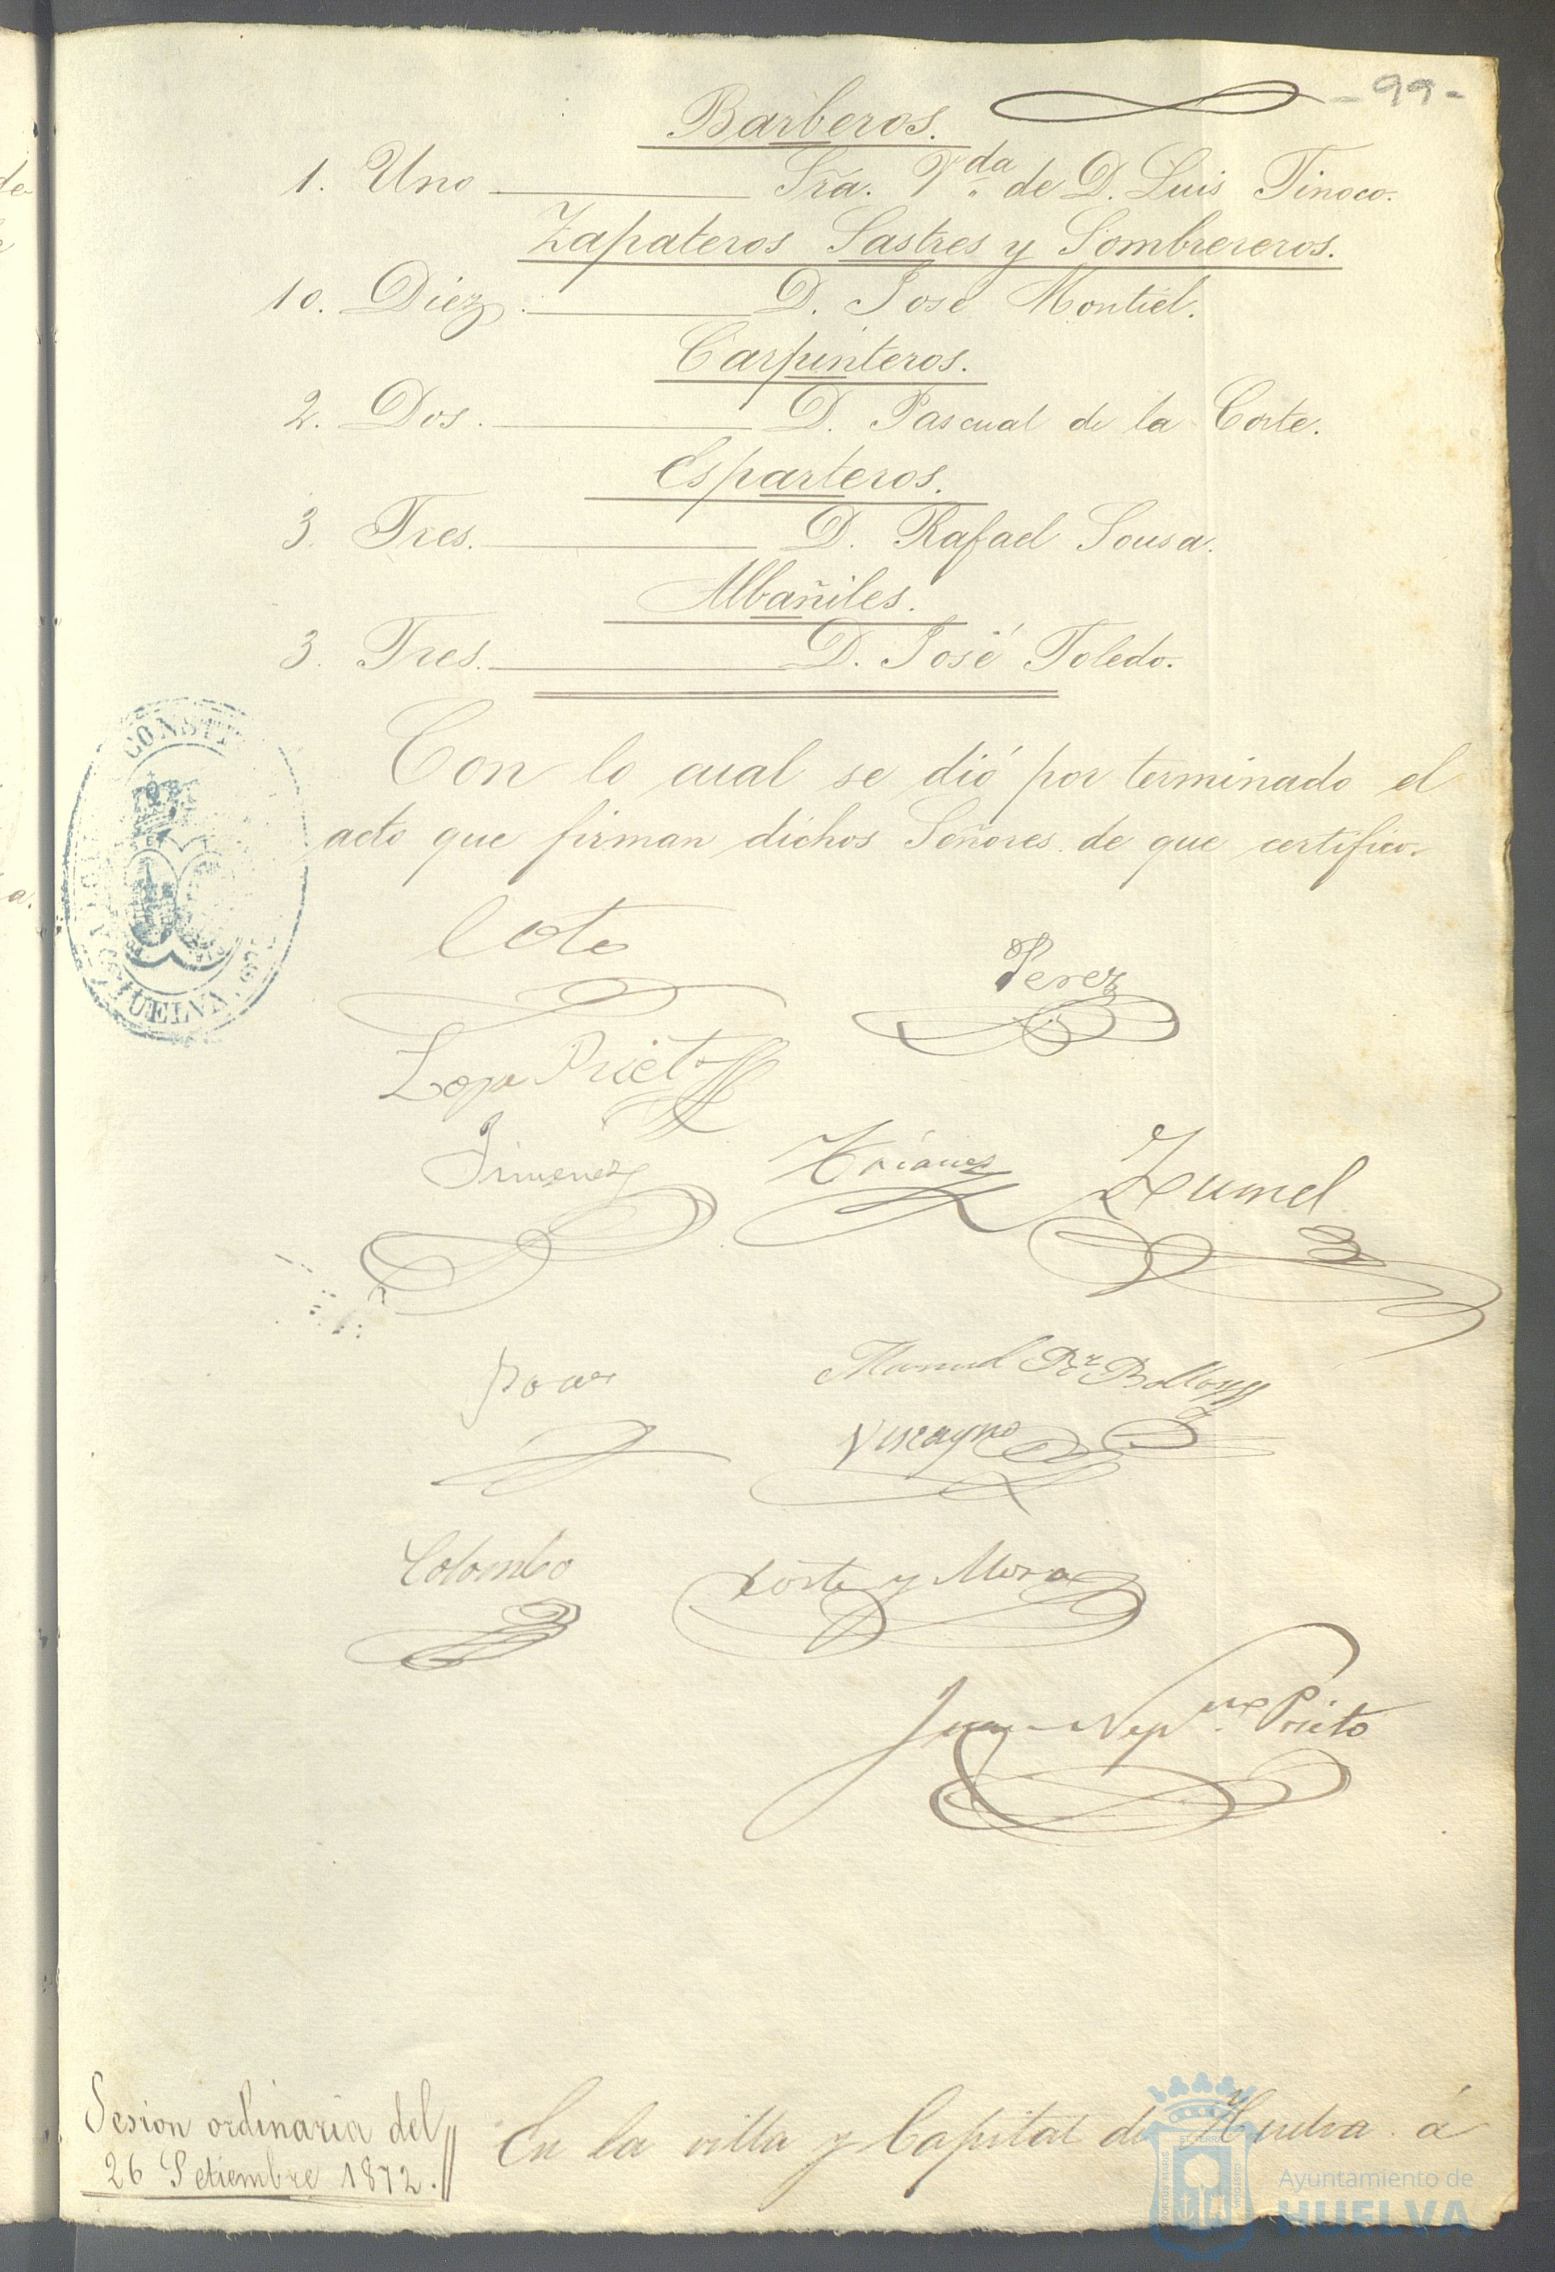 - 99 -
Barberos.
1. Uno Sra. V.da de D. Luis Tinoco.
Zapateros Sastres y Sombrereros.
10. Diez. D. José Montiel.
Carpinteros.
2. Dos. D. Pascual de la Corte.
Esparteros.
3. Tres. D. Rafael Sousa.
Albañiles.
3. Tres. D. José Toledo.
Con lo cual se dió por terminado el
acto que firman dichos Señores de que certifico.
CONSTI
HUELVA
Coto
Perez
Lopez Prieto
Jimenez
Zumel
Manuel
Vizcayno
Colombo
Corte y Mora
Juan Prieto
Sesion ordinaria del
26 Setiembre 1872.
En la villa y Capital de Huelva á
Ayuntamiento de
HUELVA